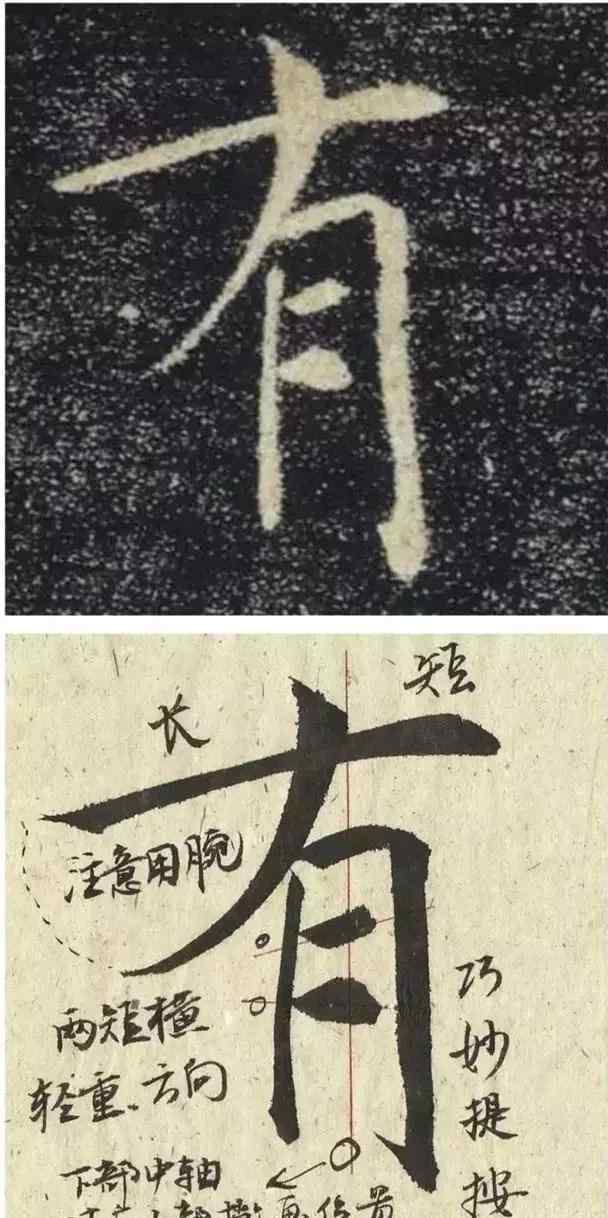 有
短
长
有
注意用腕
两短横
轻重、方向
巧妙提按
下部中轴